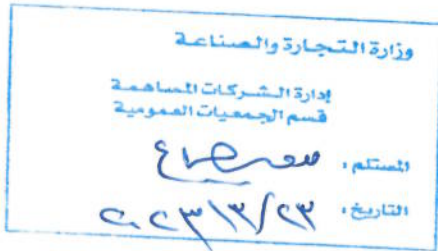 وزارة التجارة والصناعة
إدارة الشركات المساهمة
قسم الجمعيات العمومية
المستلم :
التاريخ : ٢٠٢٣/٣/٢٣